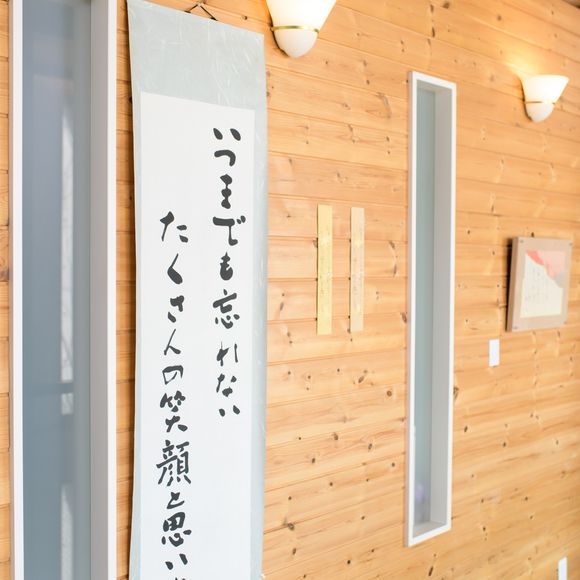 いつまでも忘れない
たくさんの笑顔と思い